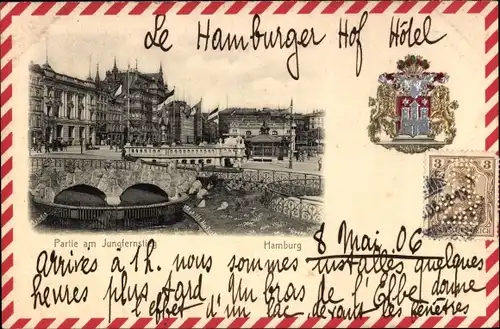 Le Hamburger Hof Hôtel
3
Partie am Jungfernstieg
Hamburg
8 Mai. 06
Arrivés à 1h. nous sommes installés quelques
heures plus tard Un bras de l'Elbe donne
l'effet d'un lac devant les fenêtres